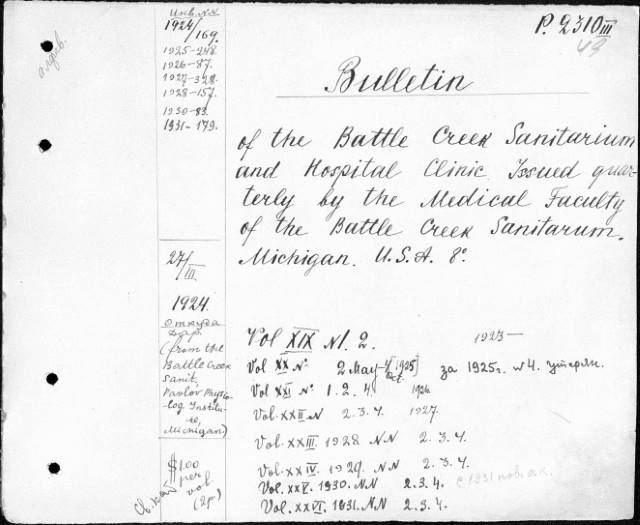 Инв. NN
1924/169.
1925-248.
1926-87.
1927-328.
1928-157.
1930-83.
1931-179.
P. 2310 III
49
Bulletin
of the Battle Creek Sanitarium
and Hospital Clinic. Issued quar-
terly by the Medical Faculty
of the Battle Creek Sanitarum.
Michigan. U.S.A. 8°.
27/III
1924.
Откуда
дар.
(from the
Battle Creek
Sanit,
Pavlov Physio-
log. Institu-
te,
Michigan)
$1.00
per
vol
(2р.)
Vol XIX N 1. 2. 1923
Vol XX N° 2 May 4/Oct. [1925] за 1925г. N 4. утерян.
Vol XXI N° 1. 2. 4. 1926
Vol. XXII N 2. 3. 4. 1927.
Vol. XXIII 1928 NN 2. 3. 4.
Vol. XXIV. 1929. NN 2. 3. 4.
Vol. XXV. 1930. NN 2. 3. 4.
Vol. XXVI. 1931. NN 2. 3. 4.